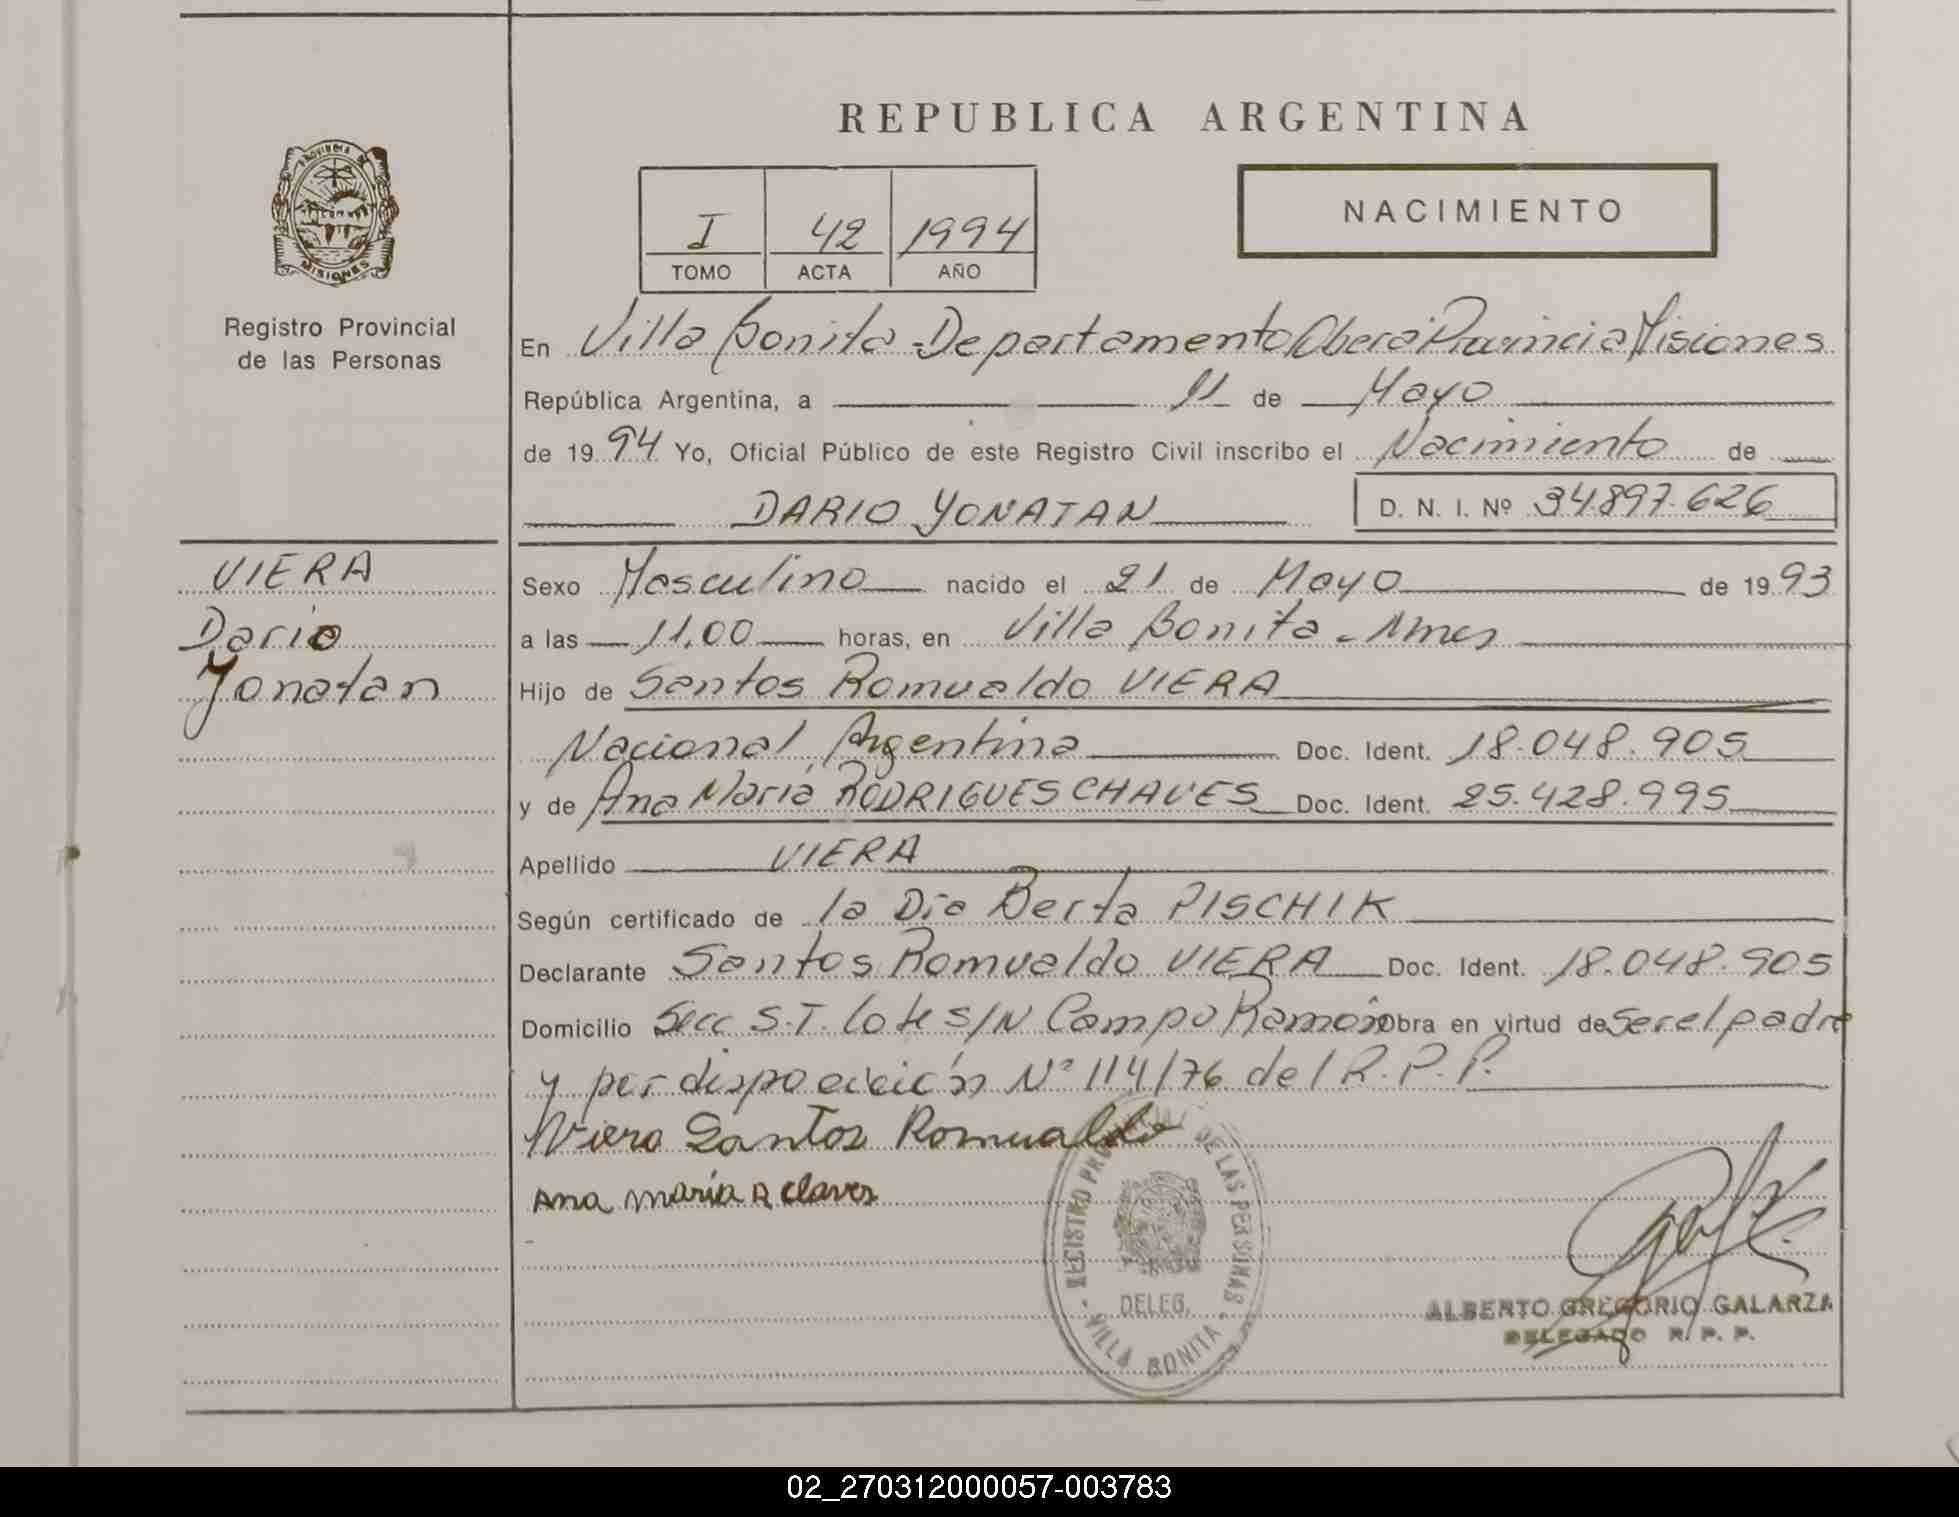 REPUBLICA ARGENTINA
PROVINCIA DE
MISIONES
Registro Provincial
de las Personas
I 42 1994
TOMO ACTA AÑO
NACIMIENTO
En Villa Bonita - Departamento Oberá Provincia Misiones
República Argentina, a 11 de Mayo
de 1994 Yo, Oficial Público de este Registro Civil inscribo el Nacimiento de
DARIO YONATAN D. N. I. Nº 34.897.626
VIERA
Dario
Yonatan
Sexo Masculino nacido el 21 de Mayo de 1993
a las 11,00 horas, en Villa Bonita - Mnes
Hijo de Santos Romualdo VIERA
Nacional Argentina Doc. Ident. 18.048.905
y de Ana Maria RODRIGUES CHAVES Doc. Ident. 25.428.995
Apellido VIERA
Según certificado de la Dra Berta PISCHIK
Declarante Santos Romualdo VIERA Doc. Ident. 18.048.905
Domicilio Secc S.T. Lote S/N Campo Ramón Obra en virtud de ser el padre
y por disposición Nº 114/76 del R.P.P.
Viera Santos Romualdo
Ana maria R claves
REGISTRO PROVINCIAL DE LAS PERSONAS
DELEG.
VILLA BONITA
ALBERTO GREGORIO GALARZA
DELEGADO R. P. P.
02_270312000057-003783